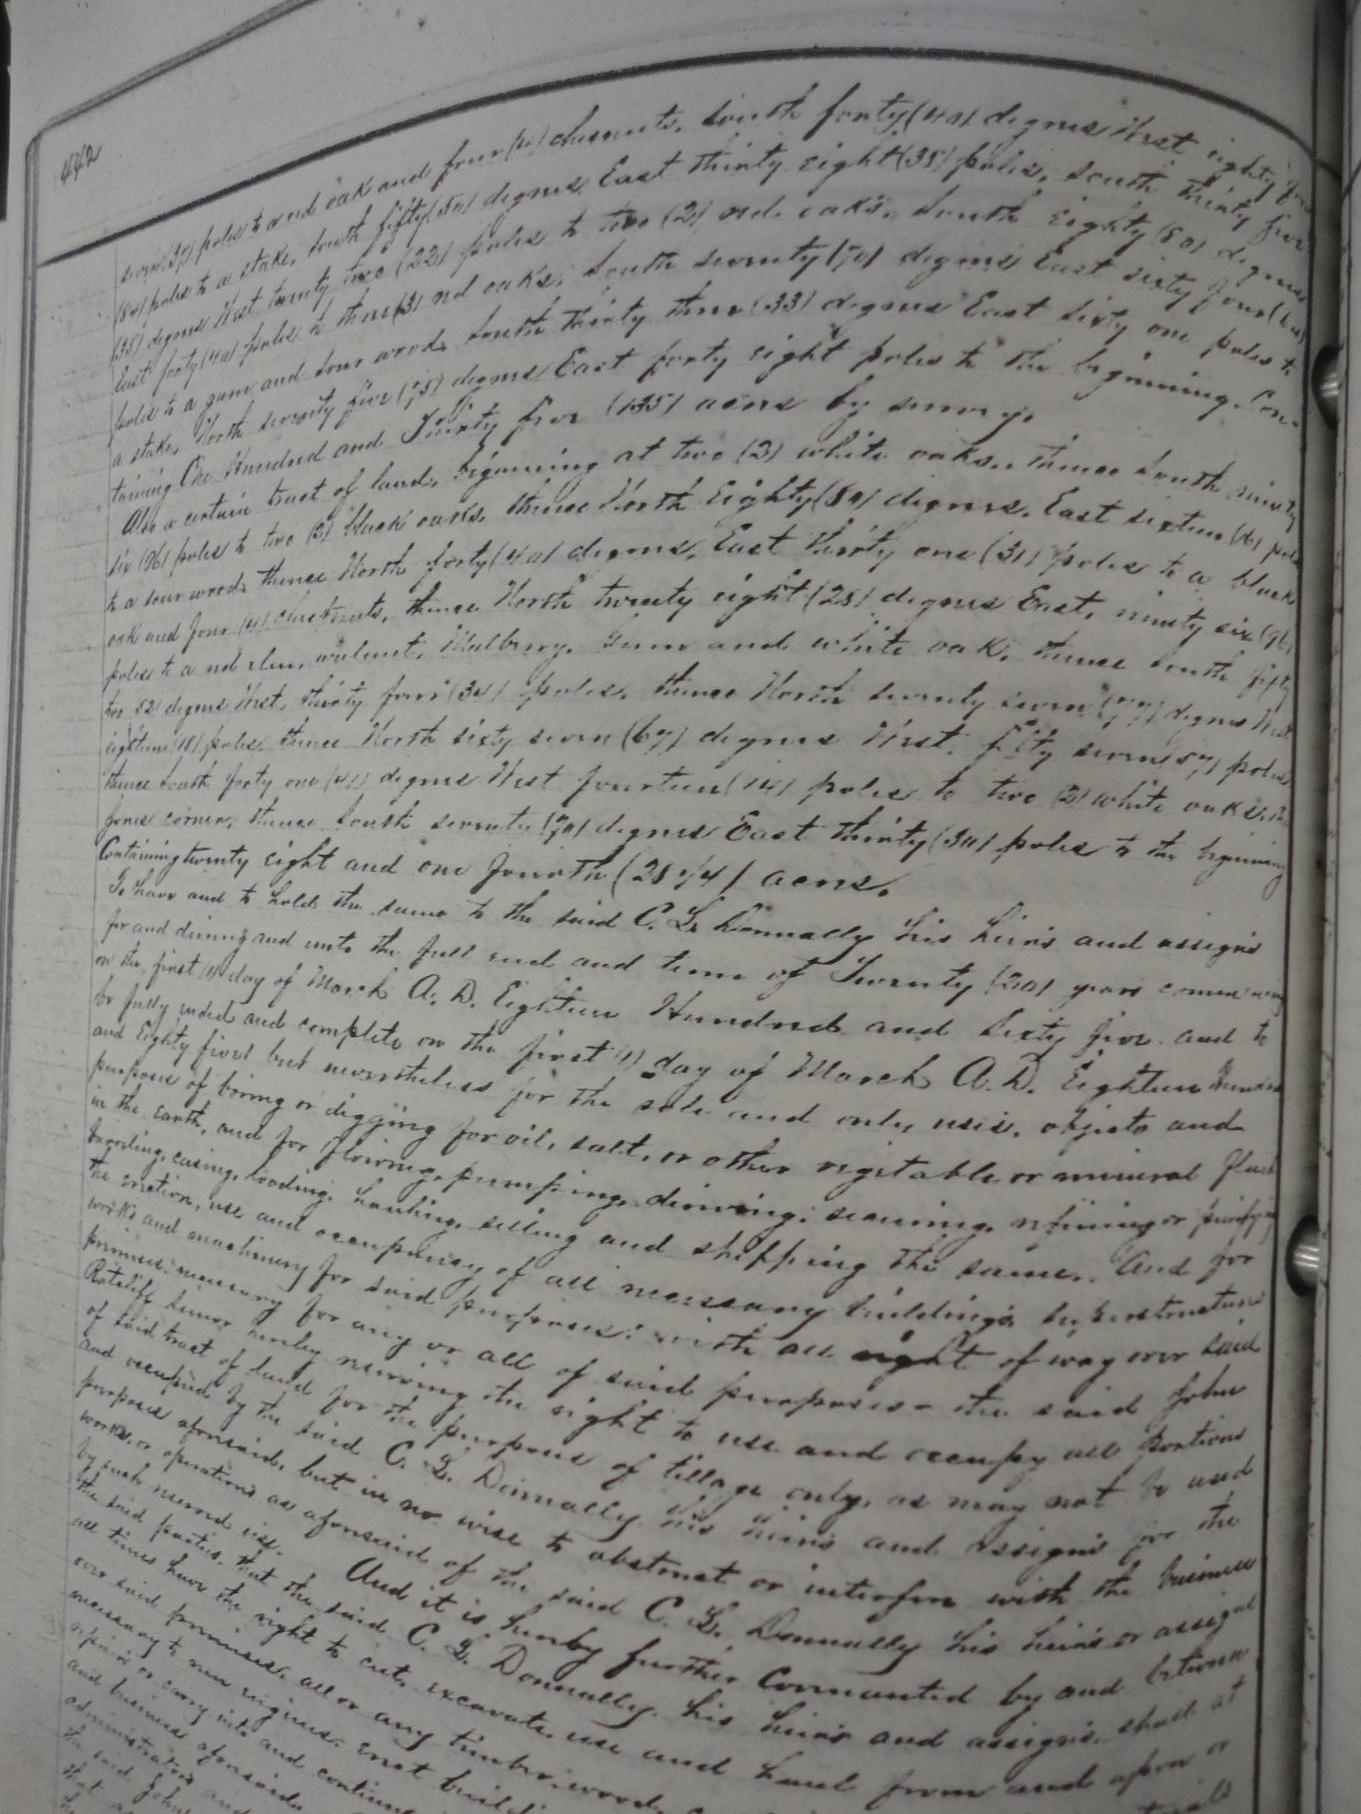 442
seven (37) poles to a red oak and four (4) chesnuts, South forty (40) degrees West eighty four
(84) poles to a stake, South fifty (50) degrees East thirty eight (38) poles, South thirty five
(35) degrees West twenty two (22) poles to two (2) red oaks, South Eighty (80) degrees
East forty (40) poles to three (3) red oaks, South seventy (70) degrees East sixty four (64)
poles to a gum and sour wood, South thirty three (33) degrees East sixty one poles to
a stake, North seventy five (75) degrees East forty eight poles to the beginning. Con-
taining One Hundred and Thirty five (135) acres by survey.
Also a certain tract of land, beginning at two (2) white oaks, thence South ninety
six (96) poles to two (2) black oaks, thence North Eighty (80) degrees, East sixteen (16) poles
to a sour wood, thence North forty (40) degrees, East thirty one (31) poles to a black
oak and four (4) chestnuts, thence North twenty eight (28) degrees East, ninety six (96)
poles to a red elm, walnut, Mulberry, Gum and white oak, thence South fifty
two 52) degrees West, thirty four (34) poles, thence North seventy seven (77) degrees West
eighteen (18) poles, thence North sixty seven (67) degrees West, fifty seven (57) poles
thence South forty one (41) degrees West fourteen (14) poles to two (2) white oaks,
Jones corner, thence South seventy (70) degrees East thirty (30) poles to the beginning
Containing twenty eight and one fourth (28 1/4) acres.
To have and to hold the same to the said C. L. Donnally his heirs and assigns
for and during and unto the full end and term of Twenty (20) years commencing
on the first (1) day of March A. D. Eighteen Hundred and Sixty five and to
be fully ended and complete on the first (1) day of March A. D. Eighteen Hundred
and Eighty five but nevertheless for the sole and only uses, objects and
purposes of boring or digging for oil, salt, or other vegetable or mineral fluid
in the earth, and for flowing, pumping, driving, securing, refining or purifying
barreling, casing, loading, hauling, selling and shipping the same. And for
the erection, use and occupancy of all necessary buildings, superstructures
works and machinery for said purposes: with all right of way over said
premises necessary for any or all of said purposes - the said John
Ratcliff Senior hereby reserving the right to use and occupy all portions
of said tract of land for the purpose of tillage only, as may not be used
and occupied by the said C. L. Donnally his heirs and assigns for the
purposes aforesaid, but in no wise to obstruct or interfere with the business
works, or operations as aforesaid of the said C. L. Donnally his heirs or assigns
by such reserved use. And it is hereby further Covenanted by and between
the said parties, that the said C. L. Donnally his heirs and assigns, shall at
all times have the right to cut, excavate, use and haul from and upon or
over said premises, all or any timber, wood,
necessary to run engines, erect
repair or carry into and continue
and business aforesaid
administrators and
the said John
that